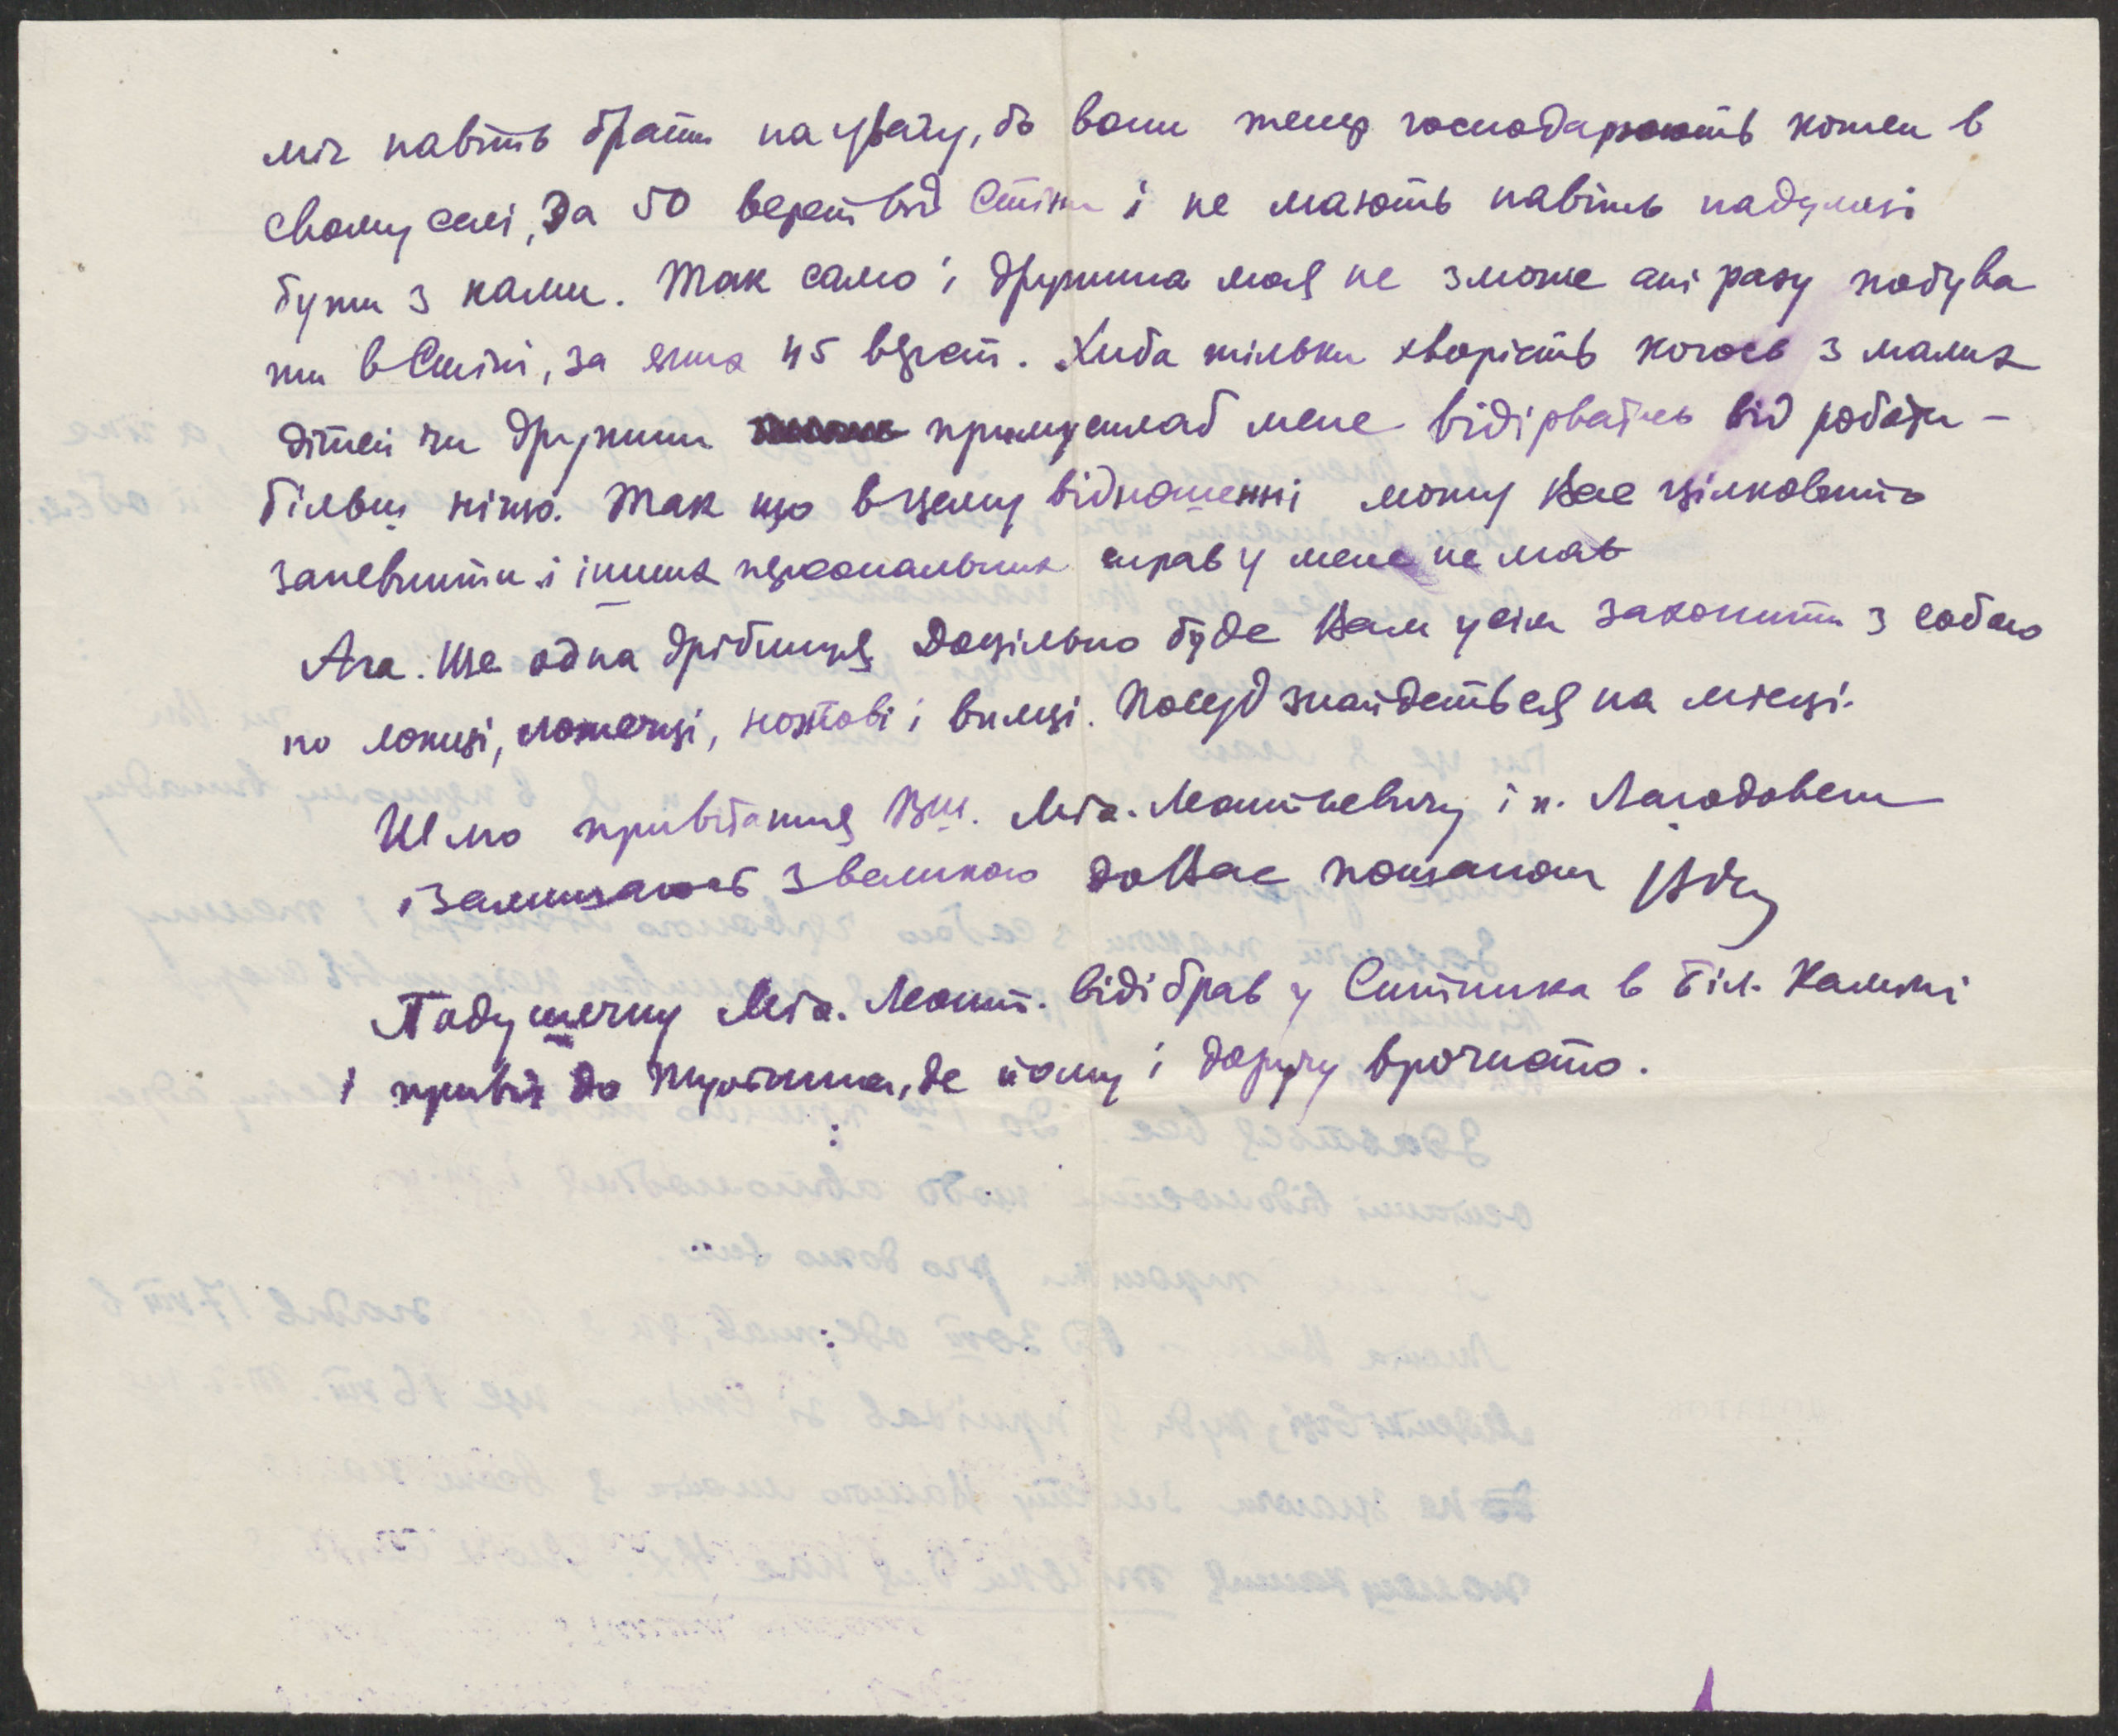 міг навіть брати на увагу, бо вони тепер господарюють кожен в
свому селі, за 50 верст від Стіни і не мають навіть на думці
бути з нами. Так само і дружина моя не зможе ані разу побува
ти в Стіні, за яких 45 верст. Хиба тільки хворість когось з малих
дітей чи дружини примусилаб мене відірватись від роботи –
більш ніщо. Так що в цьому відношенні можу Вас цілковито
запевнити і інших персональних справ у мене не має
Ага. Ще одна дрібниця Доцільно буде Вам усім захопити з собою
по ложці, ложечці, ножові і вилці. Посуд знайдеться на місці.
Шлю привітання Вш. Мта. Леонтьевичу і п. Лагодовськ
і залишаюсь з великою до Вас пошаною
Подушечку Мта. Леонт. відібрав у Ситника в Біл. Камені
і привіз до Тульчина, де йому і доручу врочисто.